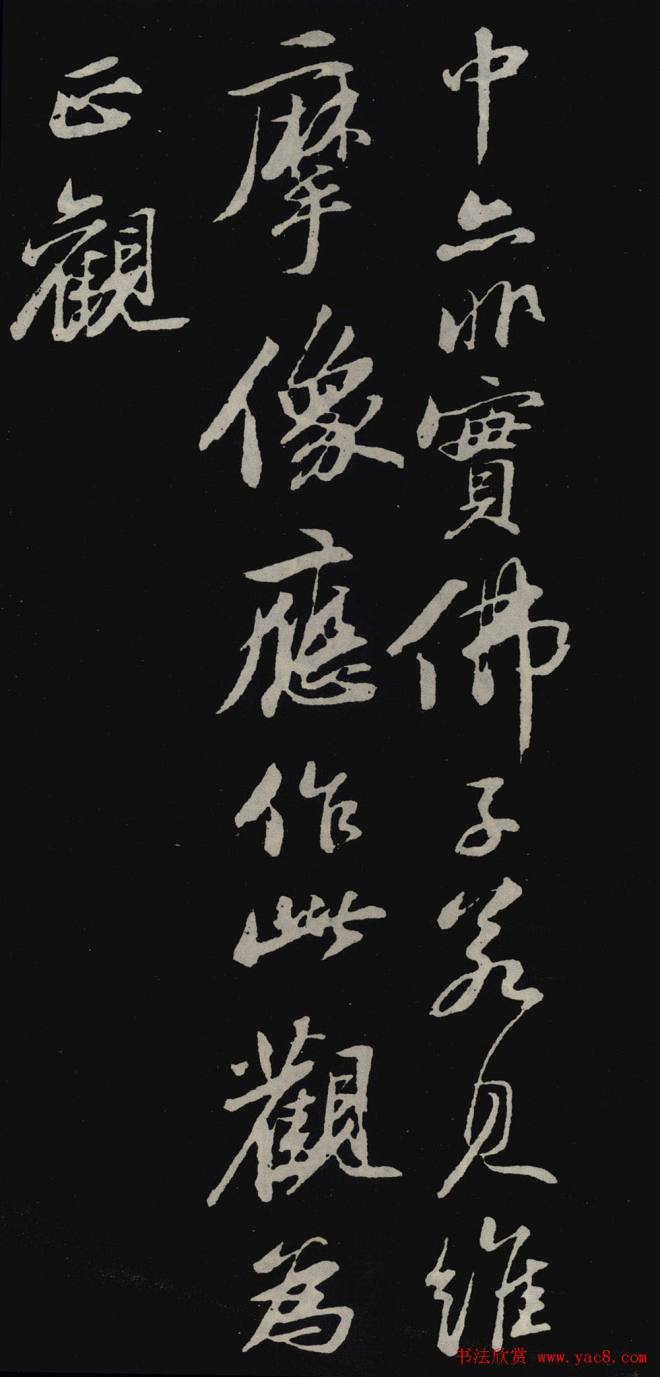 中亦非實佛子若見維
摩像應作此觀為
正觀
书法欣赏 www.yac8.com